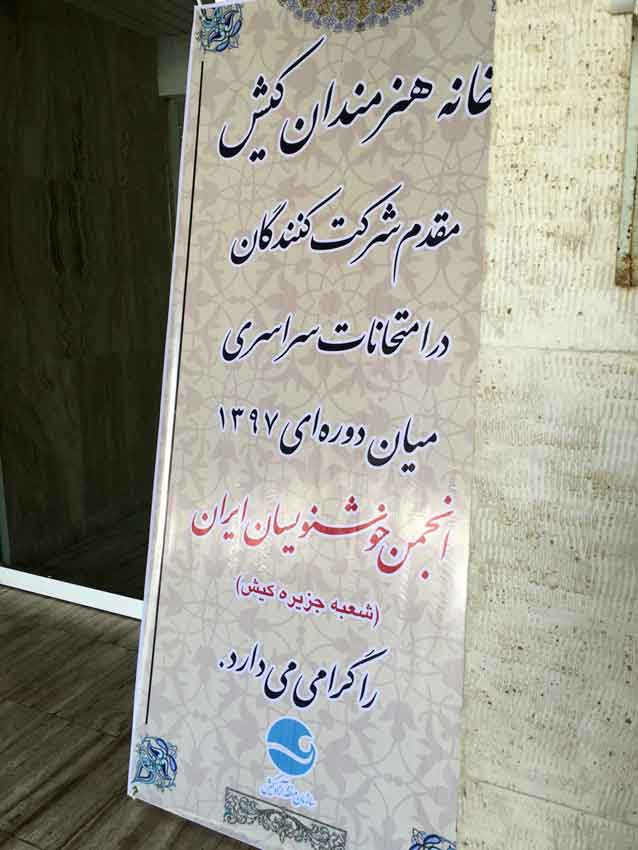 خانه هنرمندان کیش
مقدم شرکت کنندگان
در امتحانات سراسری
میان دوره ای ۱۳۹۷
انجمن خوشنویسان ایران
(شعبه جزیره کیش)
را گرامی می دارد.
سازمان منطقه آزاد کیش